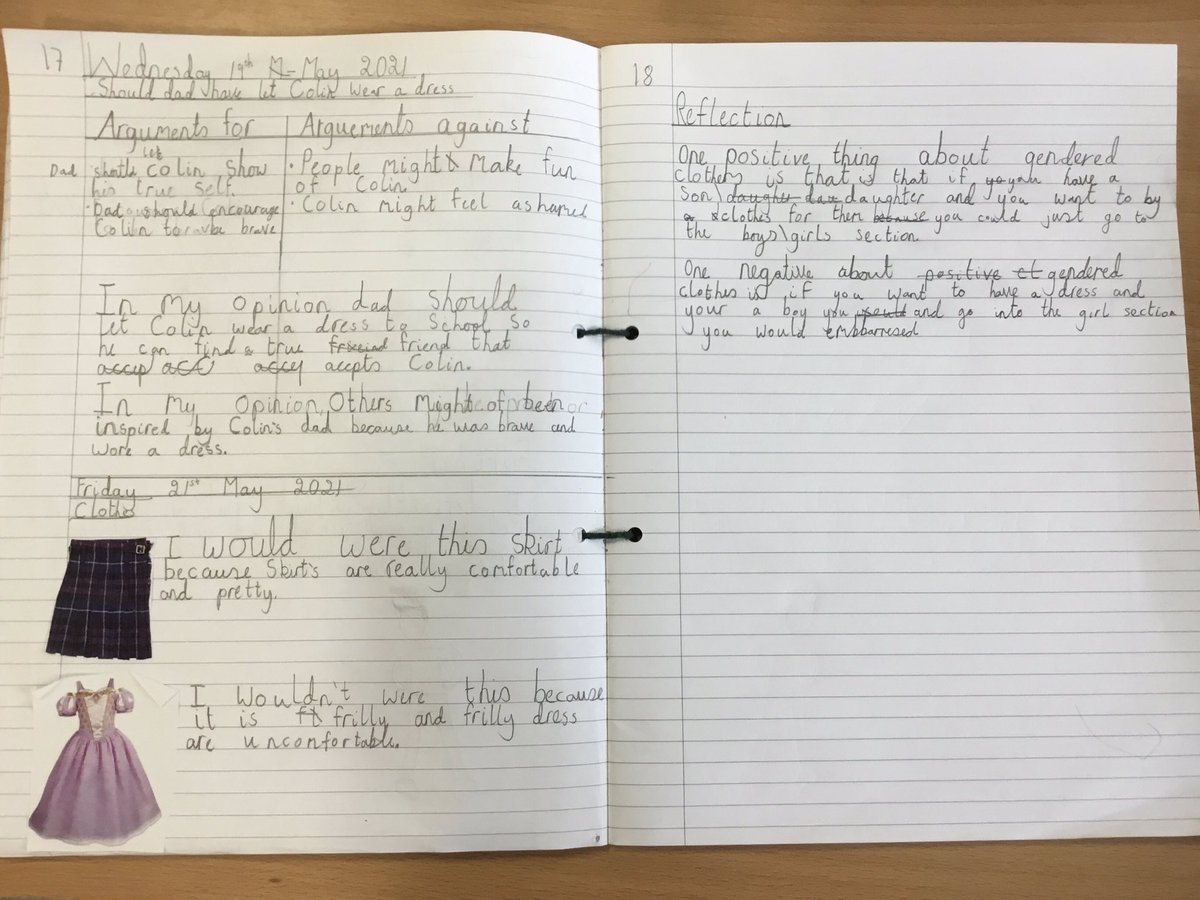 17
Wednesday 19th M- May 2021
Should dad have let Colin wear a dress
Arguments for
Arguements against
Dad should let Colin show
his true self.
· Dad should encourage
Colin to be brave
· People might Make fun
of Colin.
· Colin might feel ashamed
In my opinion, dad should
let Colin wear a dress to School so
he can find a true friend that
accepts Colin.
In my opinion, Others Might of been
inspired by Colin's dad because he was brave and
wore a dress.
Friday 21st May 2021
Clothes
I would were this skirt
because Skirt's are really comfortable
and pretty.
I wouldn't were this because
it is frilly and frilly dress
are uncomfortable.
18
Reflection
One positive thing about gendered
clothes is that is that if you have a
son\ daughter and you want to by
clothes for them because you could just go to
the boys\girls section.
One negative about positive gendered
clothes is, if you want to have a dress and
your a boy you would and go into the girl section
you would embbarresed